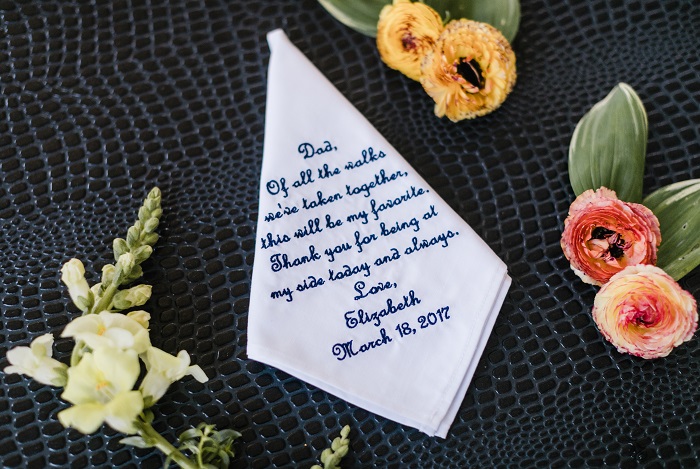 Dad,
Of all the walks
we've taken together,
this will be my favorite.
Thank you for being at
my side today and always.
Love,
Elizabeth
March 18, 2017